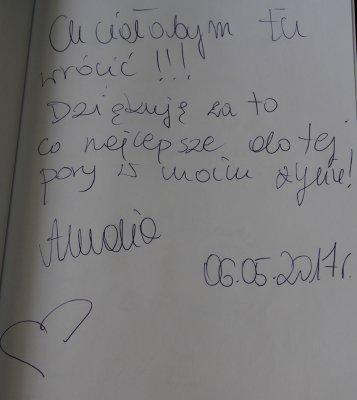 Chciałabym tu
wrócić !!!
Dziękuję za to
co najlepsze do tej
pory w moim życiu!
06.05.2017r.